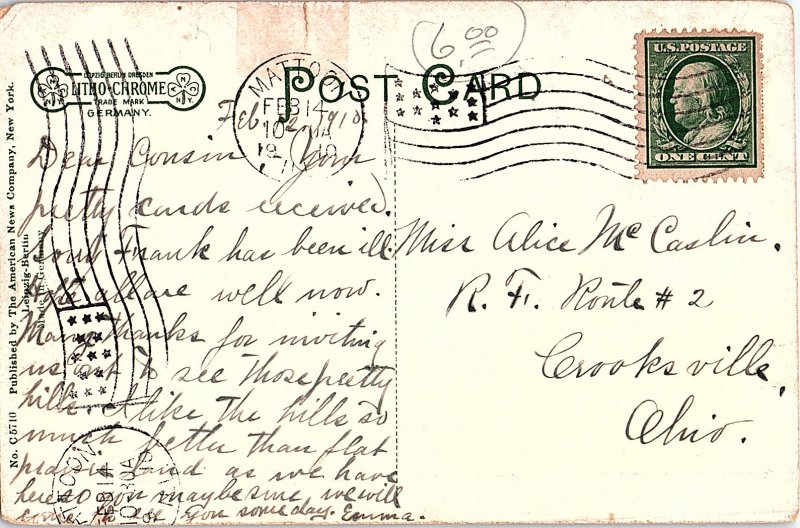 LEIPZIG BERLIN DRESDEN
LITHO-CHROME
TRADE MARK
GERMANY.
POST CARD
6.00
MATTOON
FEB 14
10
U.S. POSTAGE
ONE CENT
No. C5710 Published by The American News Company, New York.
Leipzig-Berlin
Made in Germany
Feb. 12, 1910
Dear Cousin Your
pretty cards received.
Frank has been ill
all are well now.
Many thanks for inviting
us out to see those pretty
hills. I like the hills so
much better than flat
prairie land as we have
here so you may be sure we will
come to see you some day. Emma.
Miss Alice McCaslin.
R. F. Route # 2
Crooksville,
Ohio.
MATTOON
FEB 14
10-30A